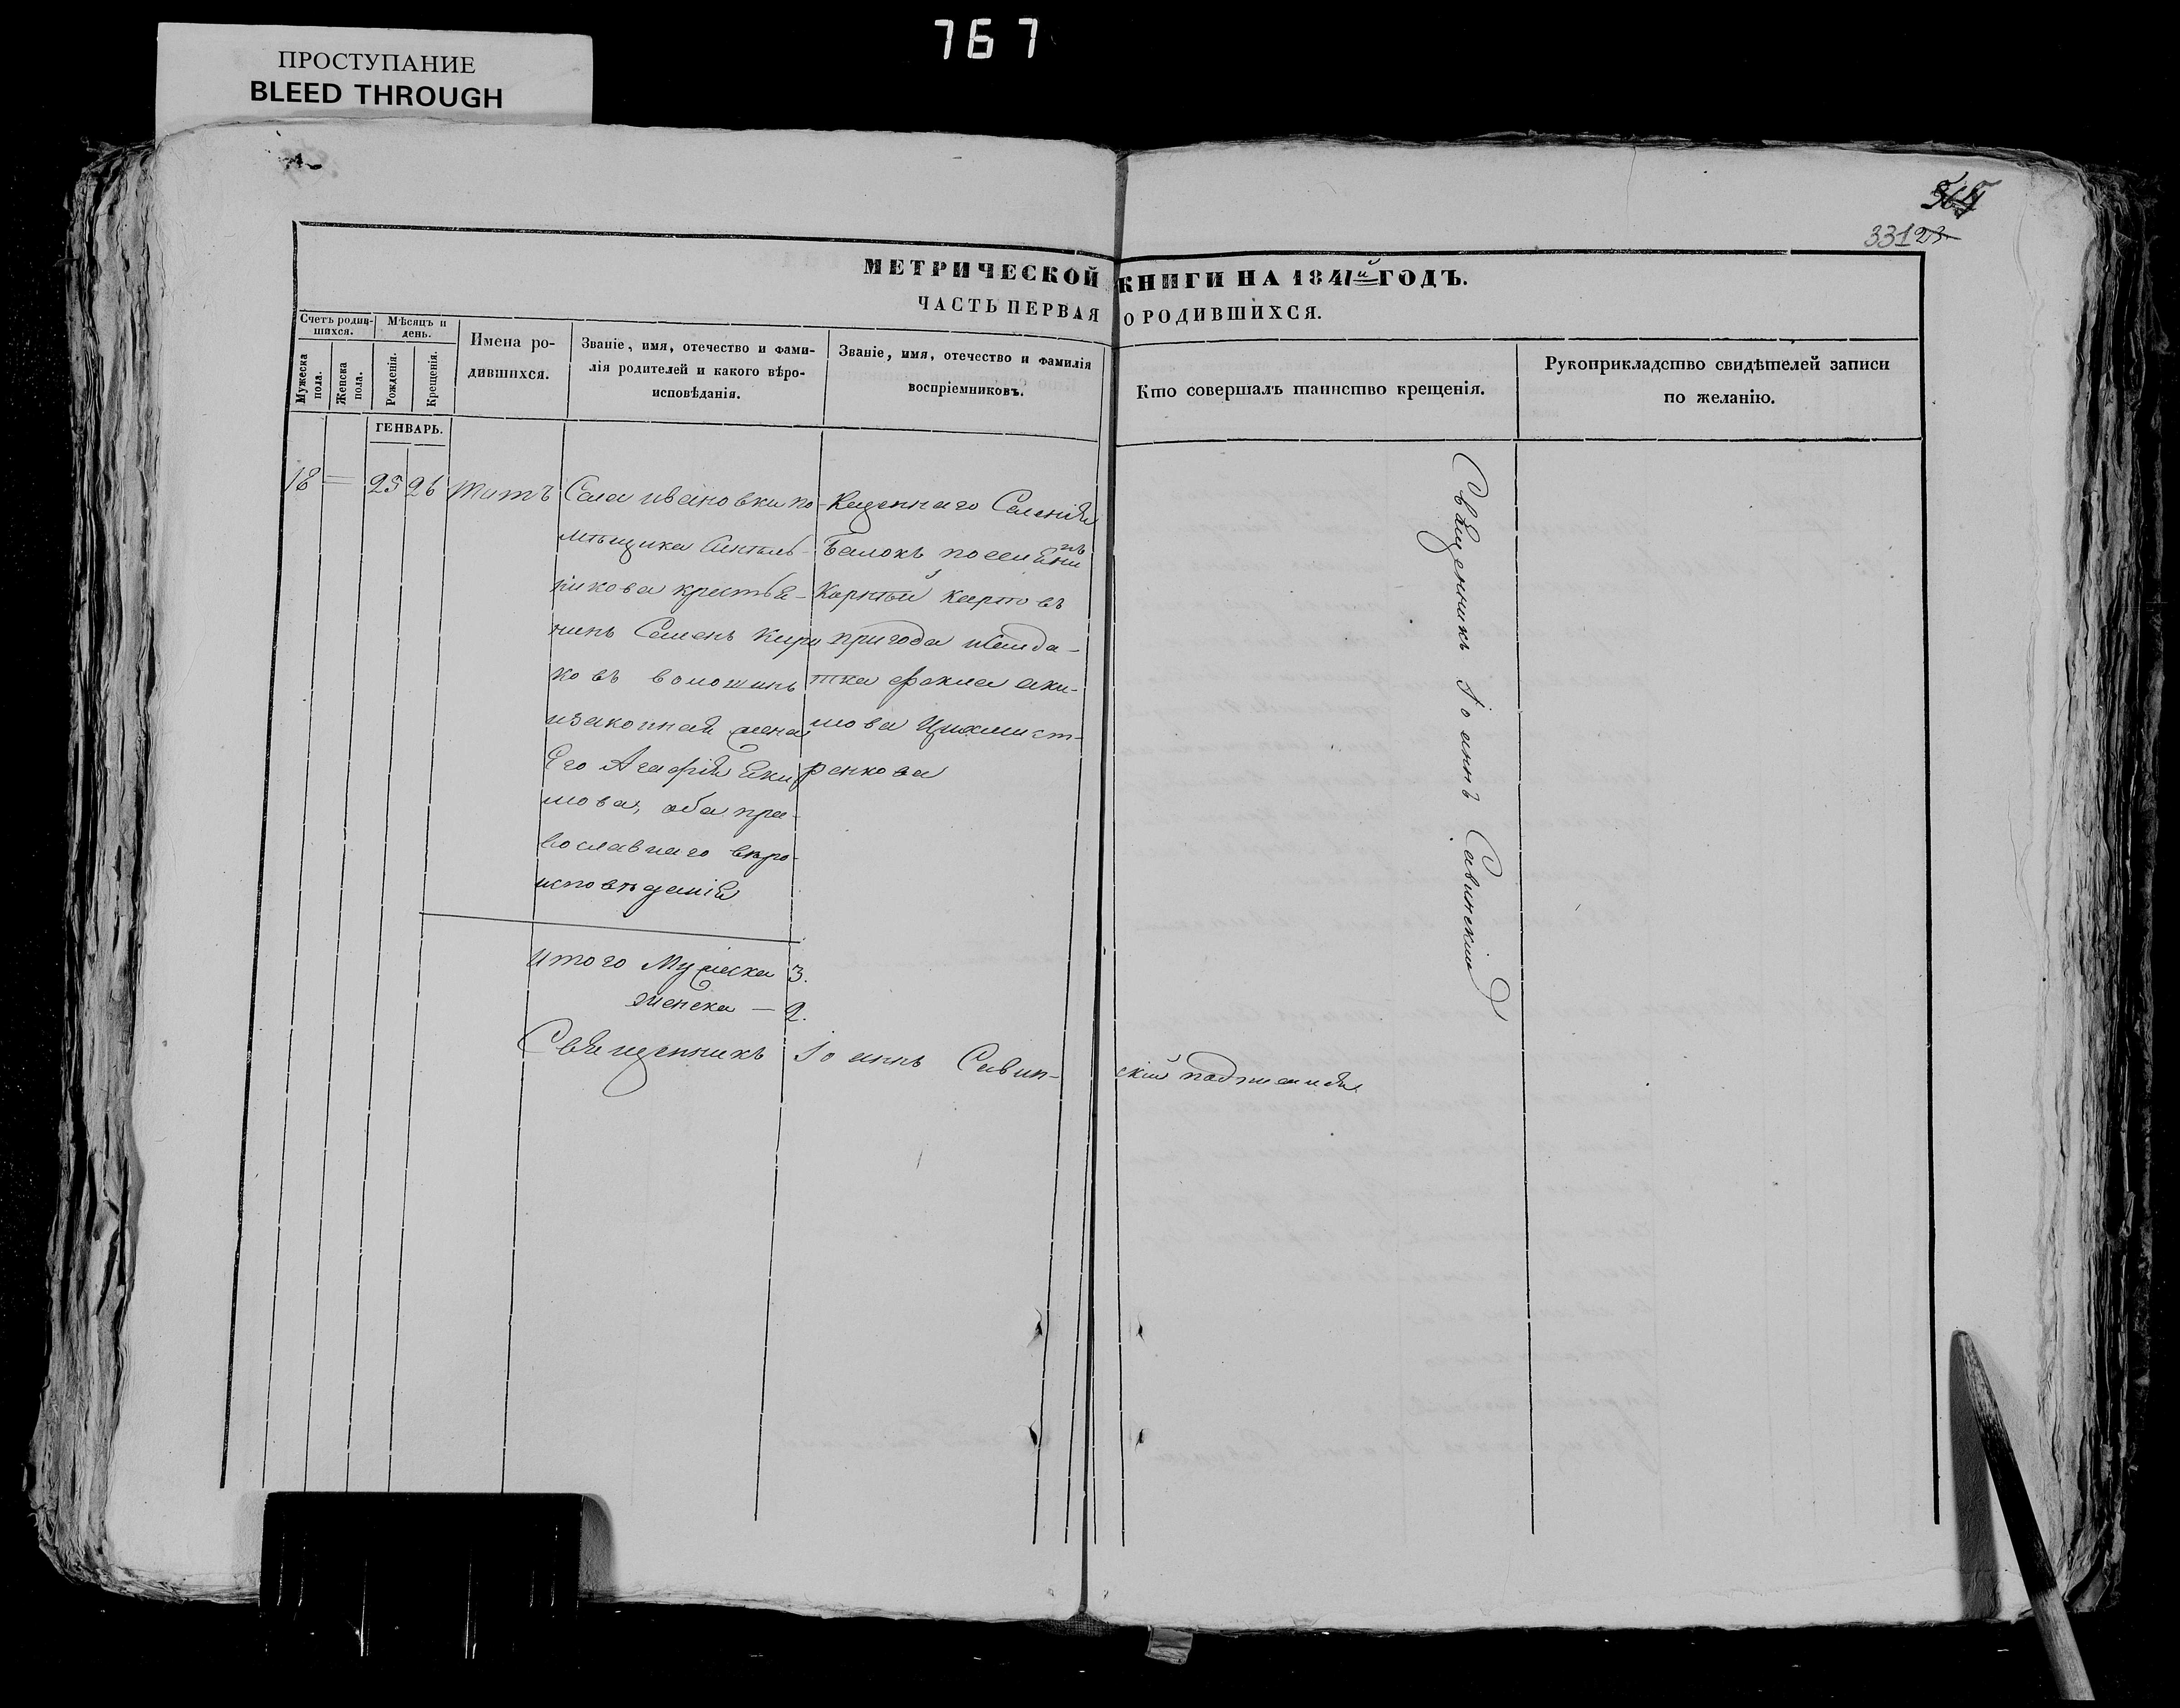 767
ПРОСТУПАНИЕ
BLEED THROUGH
331 23
МЕТРИЧЕСКОЙ КНИГИ НА 1841й ГОДЪ.
ЧАСТЬ ПЕРВАЯ О РОДИВШИХСЯ.
Счетъ родив-
шихся.
Мѣсяцъ и
день.
Мужеска
пола.
Женска
пола.
Рожденія.
Крещенія.
Имена ро-
дившихся.
Званіе, имя, отечество и фами-
лія родителей и какого вѣро-
исповѣданія.
Званіе, имя, отечество и фамилія
воспріемниковъ.
Кто совершалъ таинство крещенія.
Рукоприкладство свидѣтелей записи
по желанію.
ГЕНВАРЬ.
18 = 25 26 Титъ
Села ивановки по-
мѣщика
никова крестья-
нинъ Семенъ Киря
ковъ
изаконная жена
Его Агафія Яки
мова, оба пра-
вославнаго вѣро-
исповѣданія
Казеннаго Селенія
Балокъ поселянинъ
Карповъ
пригода
тка фекла аки-
мова
ренкова
Священникъ Іоаннъ Савинскій
Итого Мужеска 3.
женска — 2.
Священникъ Іоаннъ Савин-
скій